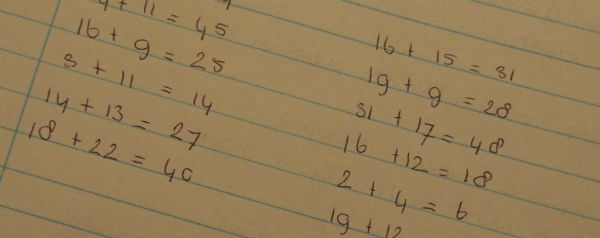 4 + 11 = 45
16 + 9 = 25
3 + 11 = 14
14 + 13 = 27
18 + 22 = 40
16 + 15 = 31
19 + 9 = 28
31 + 17 = 48
16 + 12 = 18
2 + 4 = 6
19 + 12